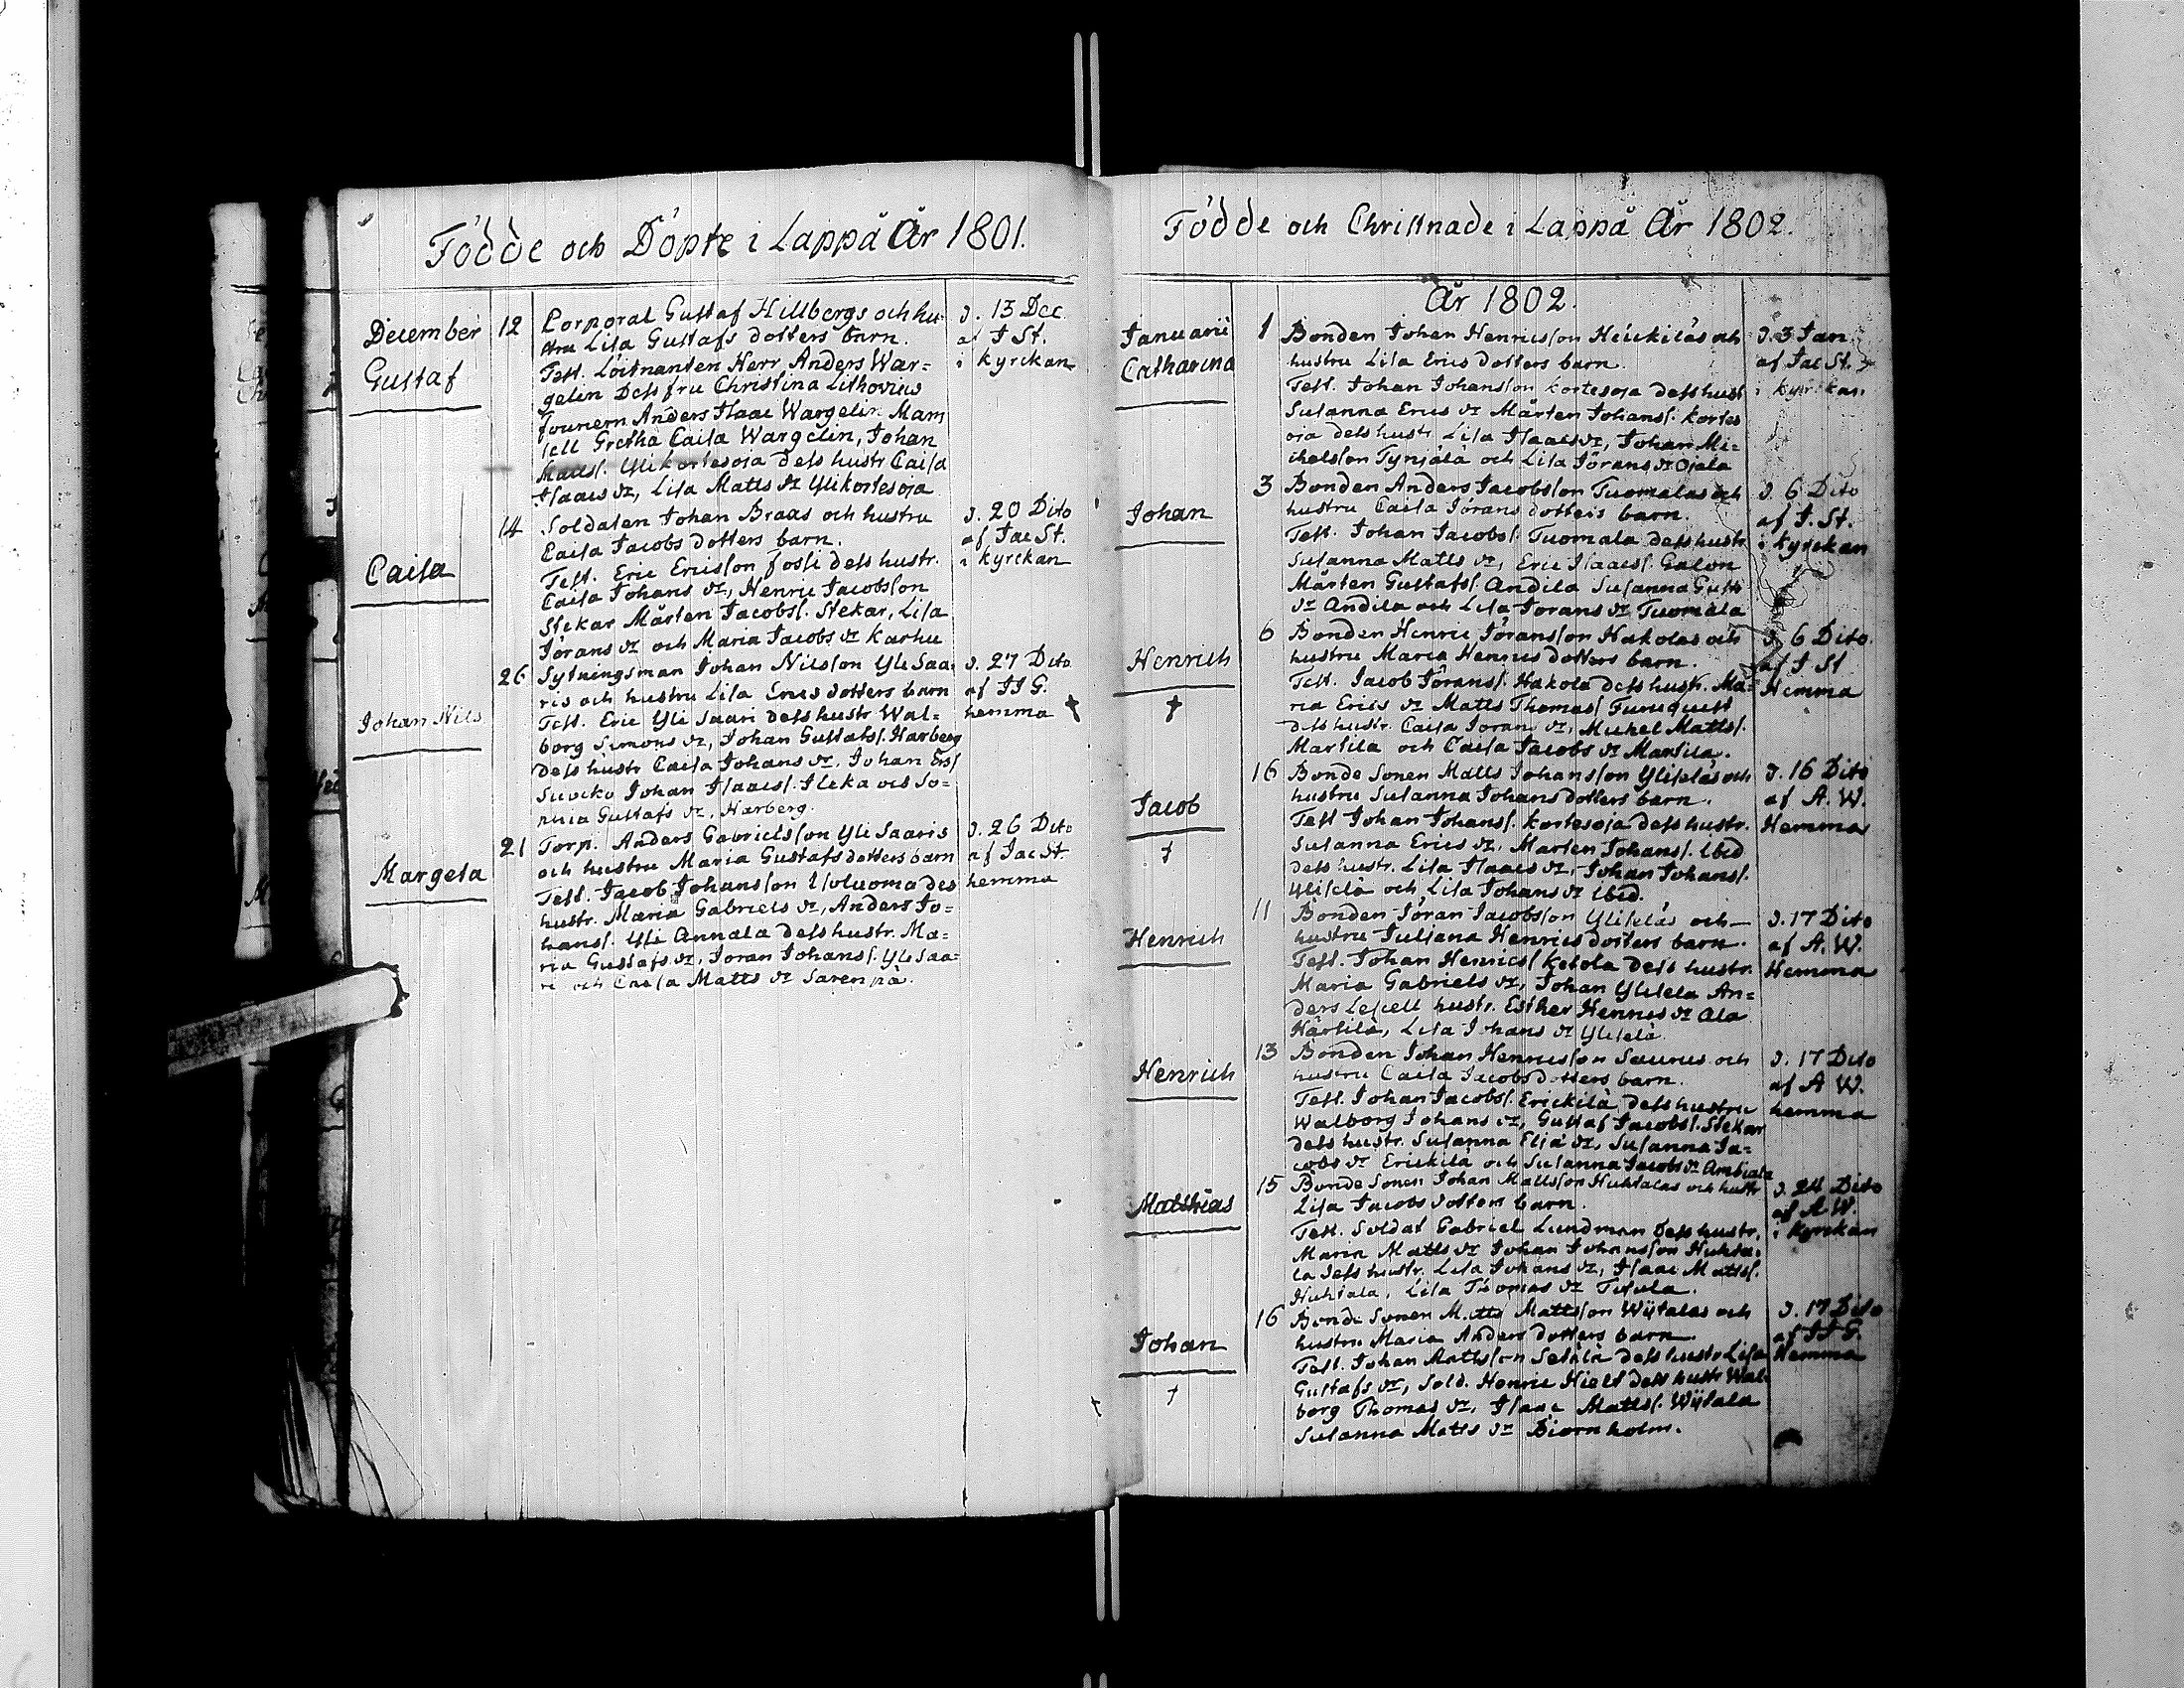 Födde och Döpte i Lappå År 1801.
December
Gustaf
12
Corporal Gustaf Hillbergs och hu-
stru Lisa Gustafs dotters barn.
Test. Löitnanten Herr Anders War=
gelin Dess fru Christina Lithovius
Fouriern Anders Isaac Wargelin Mam
sell Gretha Caisa Wargelin, Johan
Matts. Ylikortesoja dess hustr Caisa
Isaacs dr, Lisa Matts dr Ylikortesoja
d. 13 Dec.
af J St.
i kyrckan
Caisa
14
Soldaten Johan Braas och hustru
Caisa Jacobs dotters barn.
Test. Eric Ericsson fossi dess hustr.
Caisa Johans dr, Henric Jacobsson
Stekar Mårten Jacobs. Stekar, Lisa
Jörans dr och Maria Jacobs dr Karhu
d. 20 Dito
af Jac St.
i kyrckan
Johan Nils
26
Sytningsman Johan Nilsson Yli Saa-
ris och hustru Lisa Erics dotters barn
Test. Eric Yli Saari dess hustr Wal=
borg Simons dr, Johan Gustafs. Harberg
dess hustr Caisa Johans dr, Johan Ers
Johan Isaacs. Ileka och So=
phia Gustafs dr, Harberg.
d. 27 Dito
af JJ G.
hemma †
Margeta
21
Torp. Anders Gabrielsson Yli Saaris
och hustru Maria Gustafs dotters barn
Test. Jacob Johansson Isoluoma des
hustr. Maria Gabriels dr, Anders Jo=
hans. Yli Annala dess hustr. Ma=
ria Gustafs dr, Jöran Johans. Yli Saa=
ri och Caisa Matts dr Sarenpä.
d. 26 Dito
af Jac St.
hemma
Födde och Christnade i Lappå År 1802.
År 1802.
Januarii
Catharina
1
Bonden Johan Henricsson Heickiläs och
hustru Lisa Erics dotters barn.
Test. Johan Johansson Kortesoja dess hust
Susanna Erics dr Mårten Johans. Kortes
oja dess hustr Lisa Isaacs dr, Johan Mi=
chelsson Tynjälä och Lisa Jörans dr Ojala
d. 3 Jan
af Jac St.
i kyrckan
Johan
3
Bonden Anders Jacobsson Tuomalas och
hustru Caisa Jörans dotters barn.
Test. Johan Jacobs. Tuomala dess hustr
Susanna Matts dr, Eric Isaacs. Galon
Mårten Gustafs. Andila Susanna Gust
dr Andila och Lisa Jörans dr Tuomala
d. 6 Dito
af J. St.
i kyrckan
Henrich
†
6
Bonden Henric Jöransson Hakolas och
hustru Maria Henrics dotters barn.
Test. Jacob Jörans. Hakola dess hustr. Ma=
ria Erics dr Matts Thomas Furuquist
dess hustr. Caisa Jöran dr, Michel Matts.
Marsila och Caisa Jacobs dr Marsila.
d. 6 Dito.
af J St
Hemma
Jacob
†
16
Bonde Sonen Matts Johansson Yliseläs och
hustru Susanna Johans dotters barn.
Test Johan Johans. Kortesoja dess hustr.
Susanna Erics dr, Mårten Johans. Ibid
dess hustr. Lisa Isaacs dr, Johan Johans.
Yliselä och Lisa Johans dr Ibid.
d. 16 Dito
af A. W.
Hemma
Henrich
11
Bonden Jöran Jacobsson Yliseläs och
hustru Juliana Henrics dotters barn.
Test. Johan Henrics Ketola dess hustr.
Maria Gabriels dr, Johan Ylisela An=
ders hustr. Esther Henrics dr Ala
Härsilä, Lisa Johans dr Yliselä
d. 17 Dito
af A. W.
Hemma
Henrich
13
Bonden Johan Henricsson Saurus och
hustru Caisa Jacobsdotters barn.
Test. Johan Jacobs. Erickilä dess hustru
Walborg Johans dr, Gustaf Jacobs. Stekar
dess hustr. Susanna Elia dr, Susanna Ja=
cobs dr Erickilä och Susanna Jacobs dr
d. 17 Dito
af A W.
hemma
Matthias
15
Bonde Sonen Johan Mattsson Huhtalas och hustr
Lisa Jacobs dotters barn.
Test. Soldat Gabriel Lundman dess hustr.
Maria Matts dr Johan Johansson Huhta=
la dess hustr. Lisa Johans dr, Isaac Matts.
Huhtala, Lisa Thomas dr
d. 24 Dito
af A W.
i kyrckan
Johan
†
16
Bonde Sonen Matts Mattsson Wiitalas och
hustru Maria Anders dotters barn
Test. Johan Mattsson Setälä dess hustr Lisa
Gustafs dr, Sold. Henric Hielt dess hustr Wal=
borg Thomas dr, Isaac Matts. Wiitala
Susanna Matts dr Biörnholm.
d. 17 Dito
af JJ G.
Hemma